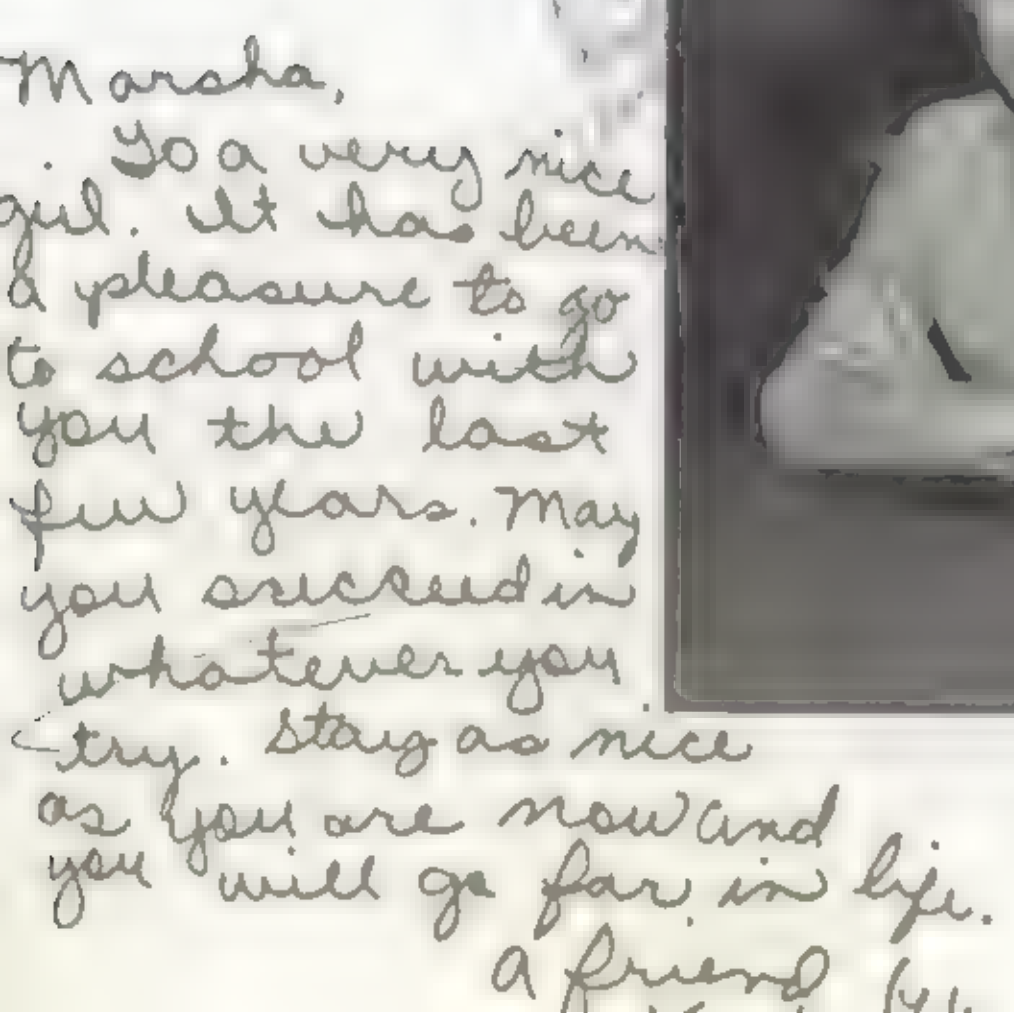 Marsha,
To a very nice
girl. It has been
a pleasure to go
to school with
you the last
few years. May
you succeed in
whatever you
try. Stay as nice
as you are now and
you will go far in life.
A friend